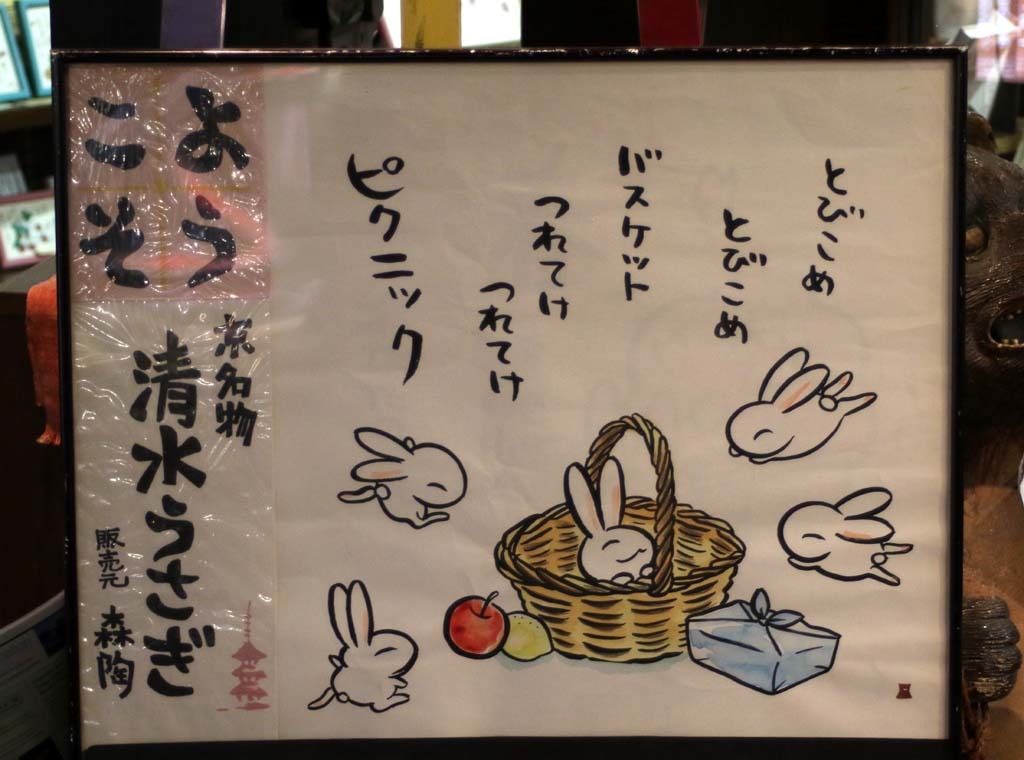 とびこめ
とびこめ
バスケット
つれてけ
つれてけ
ピクニック
よう
こそ
京名物
清水うさぎ
販売元 森陶